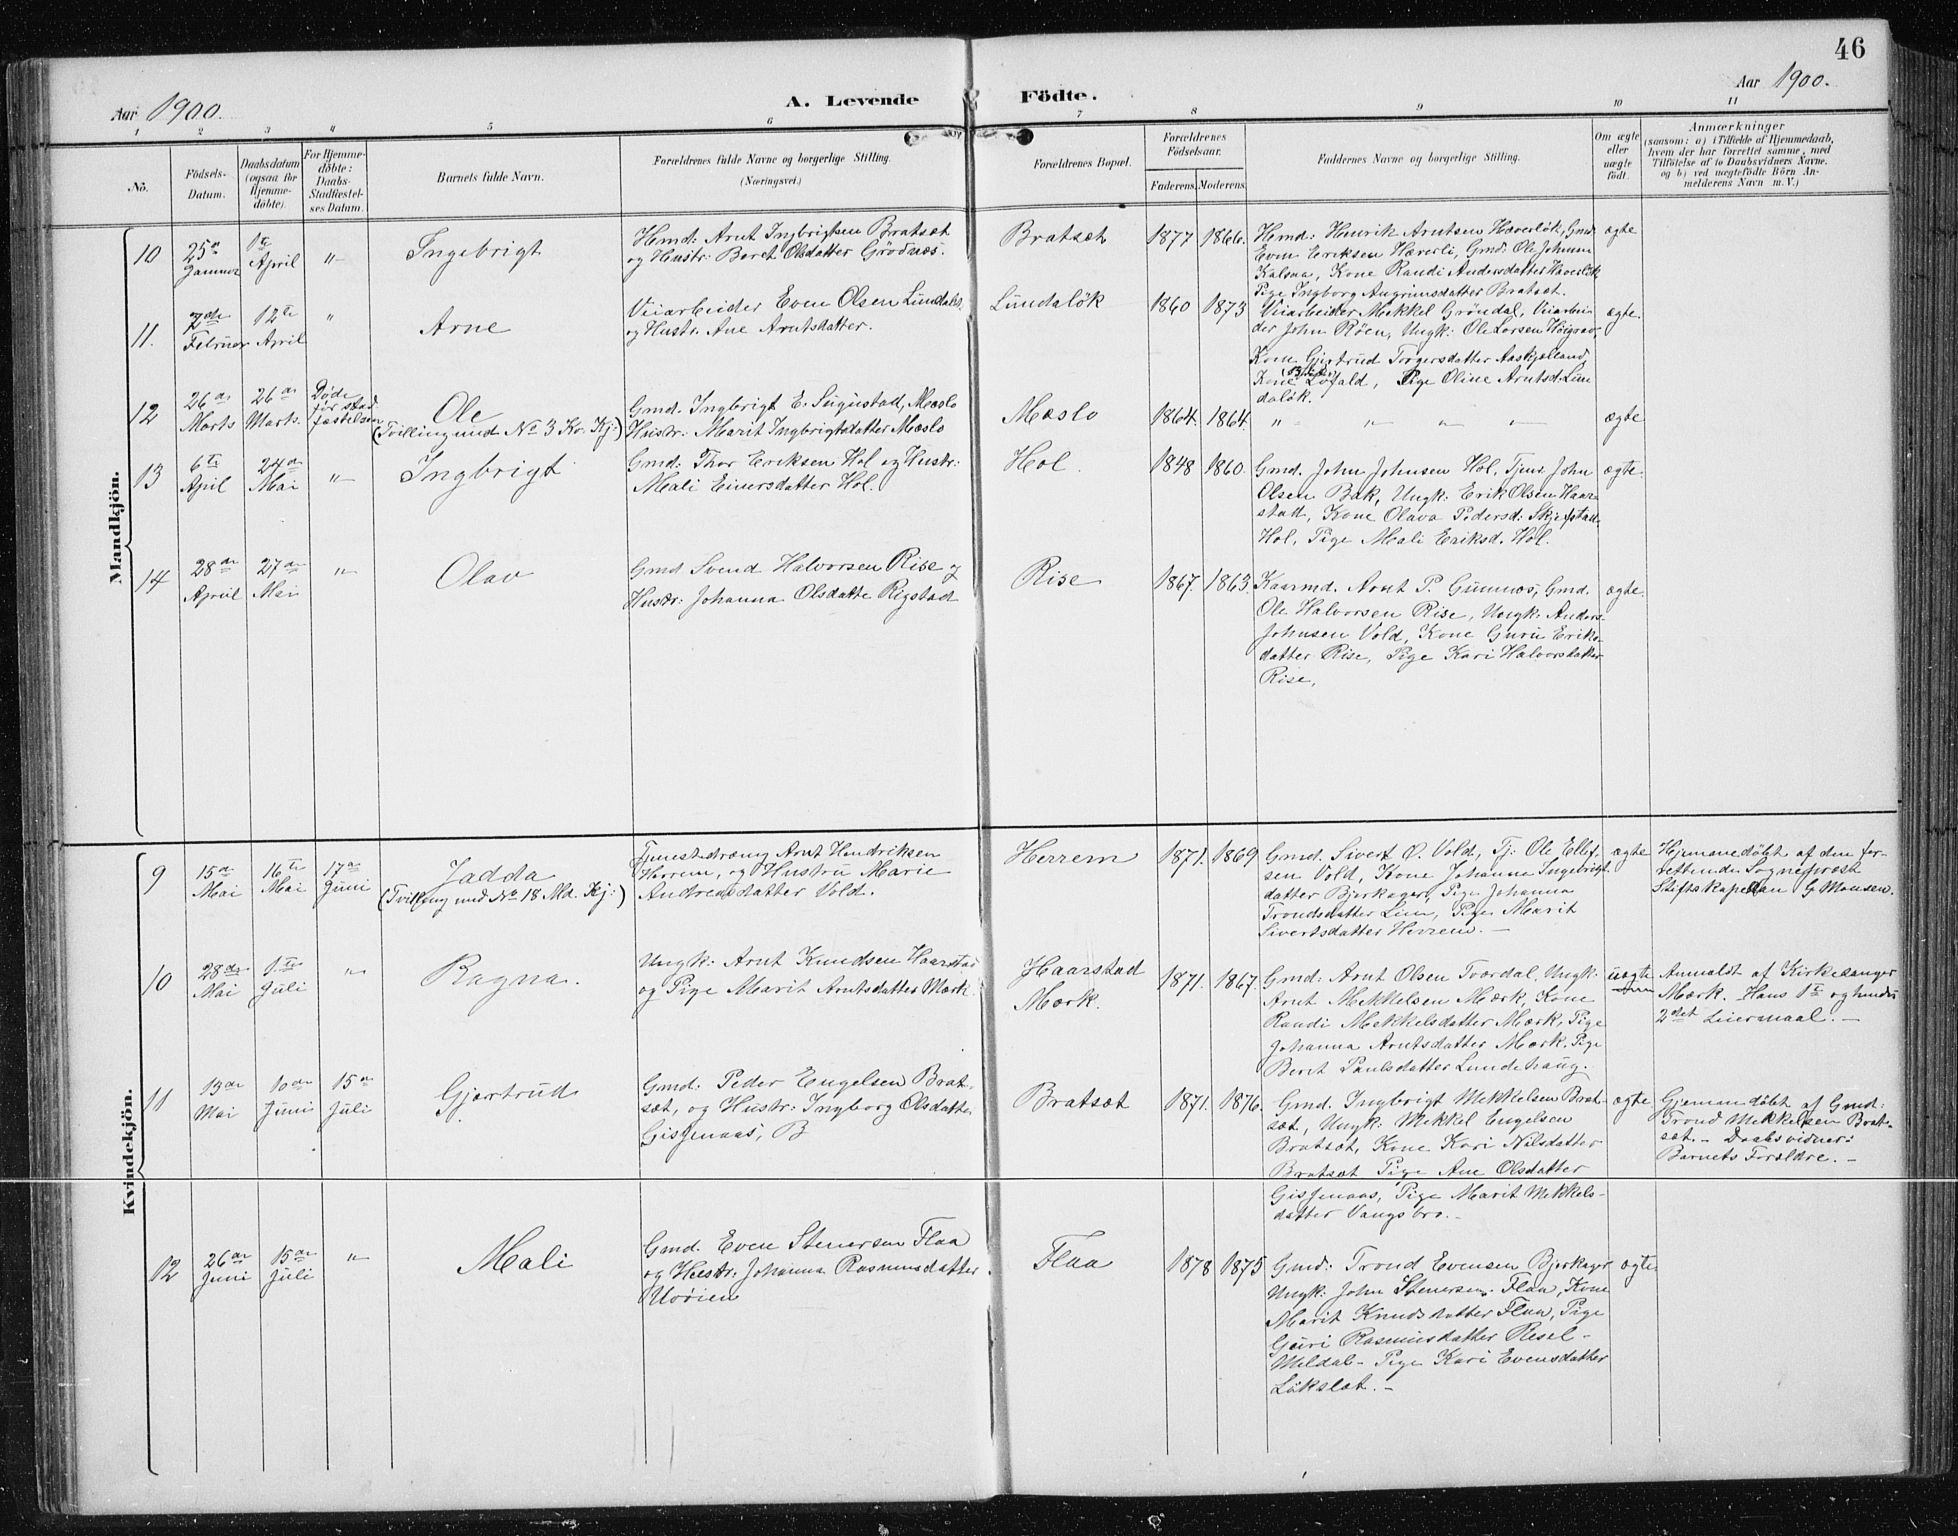 46
Aar 1900.
A. Levende Födte.
Aar 1900.
1 2 3 4 5 6 7 8 9 10 11
No.
Födsels-
Datum.
Daabsdatum
(ogsaa for
Hjemme-
döbte).
For Hjemme-
döbte:
Daabs-
Stadfæstel-
ses Datum.
Barnets fulde Navn.
Forældrenes fulde Navne og borgerlige Stilling.
(Næringsvei.)
Forældrenes Bopæl.
Forældrenes
Födselsaar.
Faderens. Moderens.
Faddernes Navne og borgerlige Stilling.
Om ægte
eller
uægte
födt.
Anmærkninger
(saasom: a) i Tilfælde af Hjemmedaab,
hvem der har forrettet samme, med
Tilföielse af to Daabsvidners Navne.
og b) ved uægtefödte Börn An-
melderens Navn m. V.)
Mandkjön.
10
25de
Januar
1ste
April
"
Ingebrigt
Hmd: Arnt Ingbrigtsen Bratset
og Hustr: Beret Olsdatter Grödnæs.
Bratset
1877 1866.
Hmd: Henrik Arntsen Haverlök, Gmd
Even Eriksen Hæverli, Gmd: Ole Johnsen
Kalena, Kone Randi Andersdatter Haverlök
Pige Ingborg Angrimsdatter Bratset.
ægte
11.
2de
Februar
12te
April
"
Arne
Veiarbeider Even Olsen Lundalök
og Hustr: Ane Arntsdatter.
Lundalök
1860 1873
Veiarbeider Mekkel Gröndal, Veiarbei
der John Röen, Ungk: Ole Larsen Höigrav,
Kone Gjertrud Torgersdatter Aaskjælland
Kone Löfald, Pige Oline Arntsd. Lun
dalök.
ægte.
12
26de
Marts
26de
Marts.
Döde
för stad
fæstelsen
Ole
(Tvilling med No 3 Kv. Kj:)
Gmd. Ingbrigt E. Sugustad, Mæslo
Hustr: Marit Ingbrigtsdatter Mæslo
Mæslo
1864. 1864.
" " " "
ægte
13
6te
April
24de
Mai
"
Ingbrigt
Gmd: Thor Eriksen Hol og Hustr:
Mali Einersdatter Hol.
Hol.
1848 1860.
Gmd. John Johnsen Hol, Tjen: John
Olsen Bak, Ungk: Erik Olsen Haar
stad, Kone Olava Pedersd: Skjefstad,
Hol, Pige Mali Eriksd. Hol.
ægte.
14
28de
April
27de
Mai
"
Olav
Gmd. Svend Halvorsen Rise og
Hustr: Johanna Olsdatte Rigstad
Rise
1867. 1863.
Kaarmd. Arnt P. Gunnes, Gmd.
Ole Halvorsen Rise, Ungk: Anders
Johnsen Vold, Kone Guru Eriks
datter Rise, Pige Kari Halvorsdatter
Rise,
ægte.
Kvindekjön.
9
15de
Mai
16te
Mai
17de
Juni
Jadda
(Tvilling med No 18 Md. Kj:)
Tjenestedræng Arnt Hendriksen
Herrem, og Hustru Marie
Andreasdatter Vold.
Herrem
1871. 1869
Gmd. Sivert O. Vold, Tj: Ole Ellef-
sen Vold, Kone Johanna Ingebrigt
datter Bjerkager, Pige Johanna
Trondsdatter Lien, Pige Marit
Sivertsdatter Herrem. -
ægte
Hjemmedøbt af den for-
rettende Sogneprest
Stiftskapellan G Monsen.
10
28de
Mai
1ste
Juli
"
Ragna.
Ungk: Arnt Knudsen Haarstad
og Pige Marit Arntsdatter Mærk.
Haarstad
Mærk.
1871. 1867.
Gmd: Arnt Olsen Tværdal, Ungk:
Arnt Mekkelsen Mærk, Kone
Randi Mekkelsdatter Mærk, Pige
Johanna Arntsdatter Mærk, Pige
Beret Paulsdatter Lundehaug.
uægte
Anmeldt af Kirkesanger
Mærk. Hans 1te og hendes
2det Leiermaal. -
11
13de
Mai
10de
Juni
15de
Juli
Gjertrud
Gmd: Peder Engelsen Brat-
sæt, og Hustr: Ingborg Olsdatter
Gisgenaas, B
Bratsæt
1871. 1876.
Gmd. Ingbrigt Mekkelsen Brat-
sæt, Ungk: Mekkel Engelsen
Bratsæt, Kone Kari Nilsdatter
Bratsæt Pige Ane Olsdatter
Gisgenaas, Pige Marit Mekkels-
datter Vangsbro. -
ægte
Hjemmedøbt af Gmd:
Trond Mekkelsen Brat-
sæt. - Daabsvidner:
Barnets Forældre. -
12
26de
Juni
15de
Juli
"
Mali
Gmd. Even Stenersen Flaa
og Hustr: Johanna Rasmusdatter
Uvöien
Flaa
1878 1875
Gmd: Trond Evensen Bjerkager
Ungk: John Stenersen Flaa, Kone
Marit Knudsdatter Flaa, Pige
Guri Rasmusdatter Resel-
Meldal- Pige Kari Evensdatter
Lökslæt. -
ægte